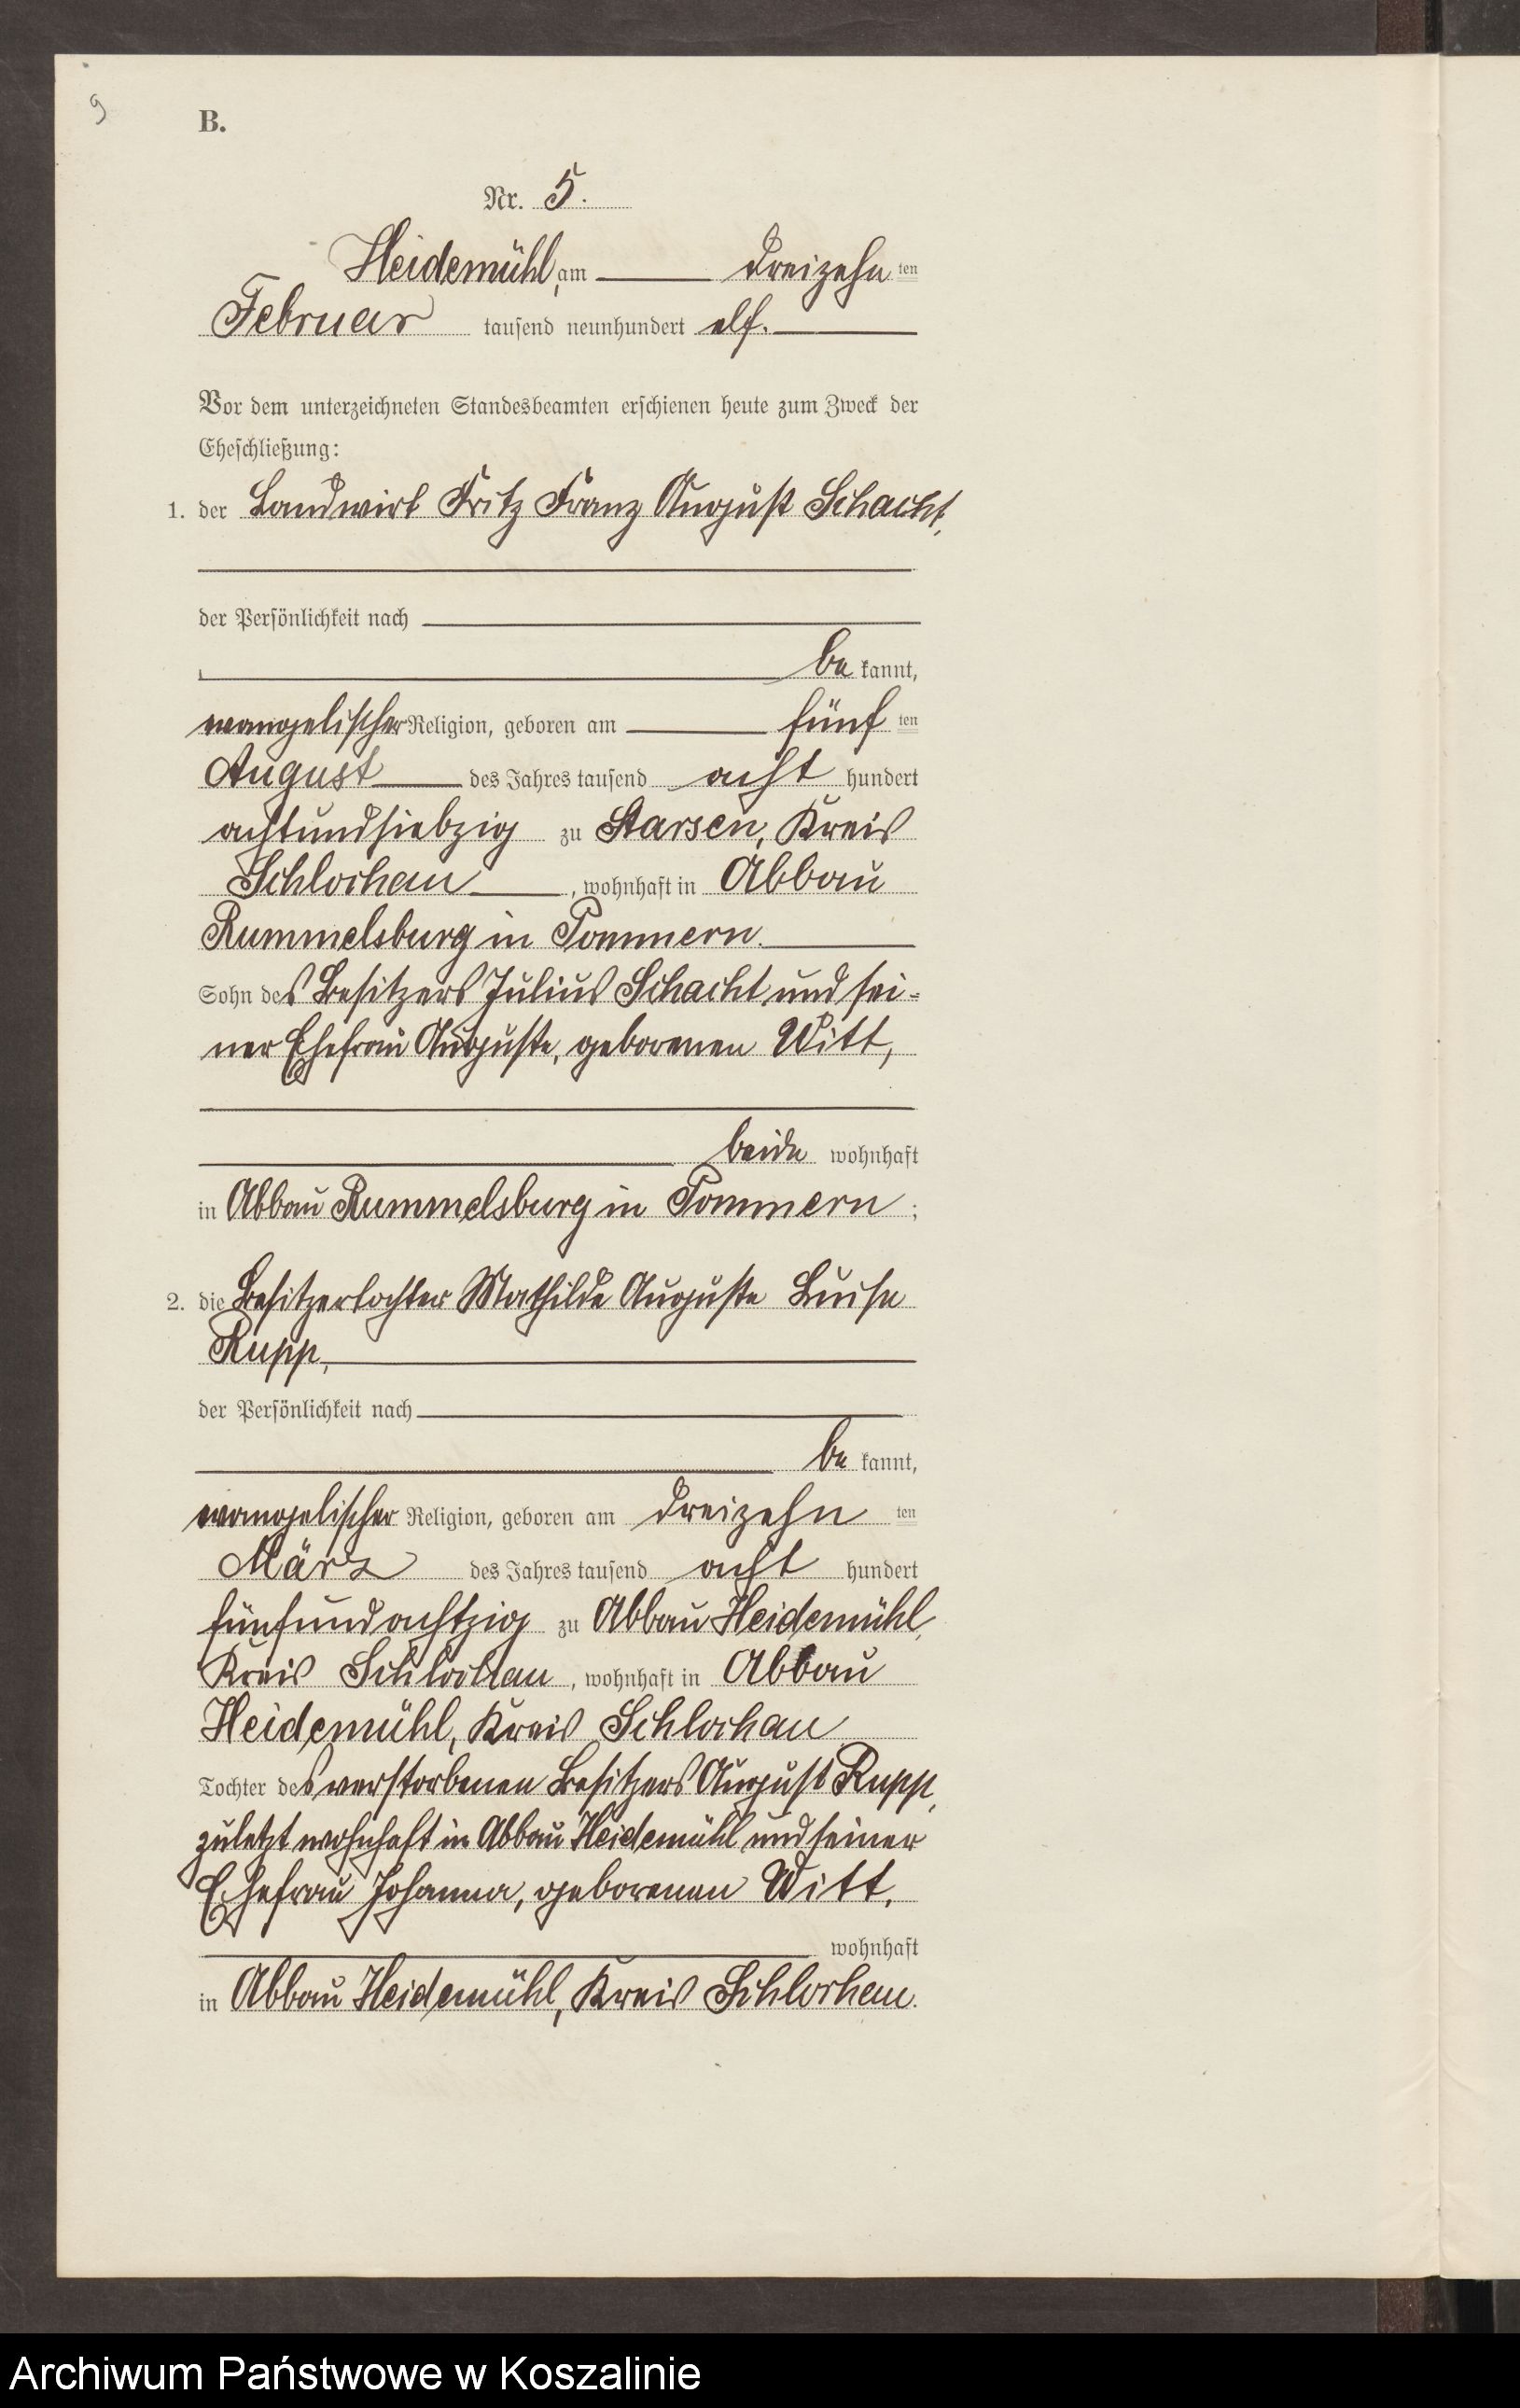 9
B.
Nr. 5.
Heidemühl, am dreizehn ten
Februar tausend neunhundert elf.
Vor dem unterzeichneten Standesbeamten erschienen heute zum Zweck der
Eheschließung:
1. der Landwirt Fritz Franz August Schacht,
der Persönlichkeit nach
be kannt,
evangelischer Religion, geboren am fünf ten
August des Jahres tausend acht hundert
achtundsiebzig zu Starsen, Kreis
Schlochau, wohnhaft in Abbau
Rummelsburg in Pommern.
Sohn des Besitzers Julius Schacht und sei-
ner Ehefrau Auguste, geborenen Witt,
beide wohnhaft
in Abbau Rummelsburg in Pommern;
2. die Besitzertochter Mathilde Auguste Luise
Rupp,
der Persönlichkeit nach
be kannt,
evangelischer Religion, geboren am dreizehn ten
März des Jahres tausend acht hundert
fünfundachtzig zu Abbau Heidemühl,
Kreis Schlochau, wohnhaft in Abbau
Heidemühl, Kreis Schlochau
Tochter des verstorbenen Besitzers August Rupp,
zuletzt wohnhaft in Abbau Heidemühl und seiner
Ehefrau Johanna, geborenen Witt,
wohnhaft
in Abbau Heidemühl, Kreis Schlochau.
Archiwum Państwowe w Koszalinie